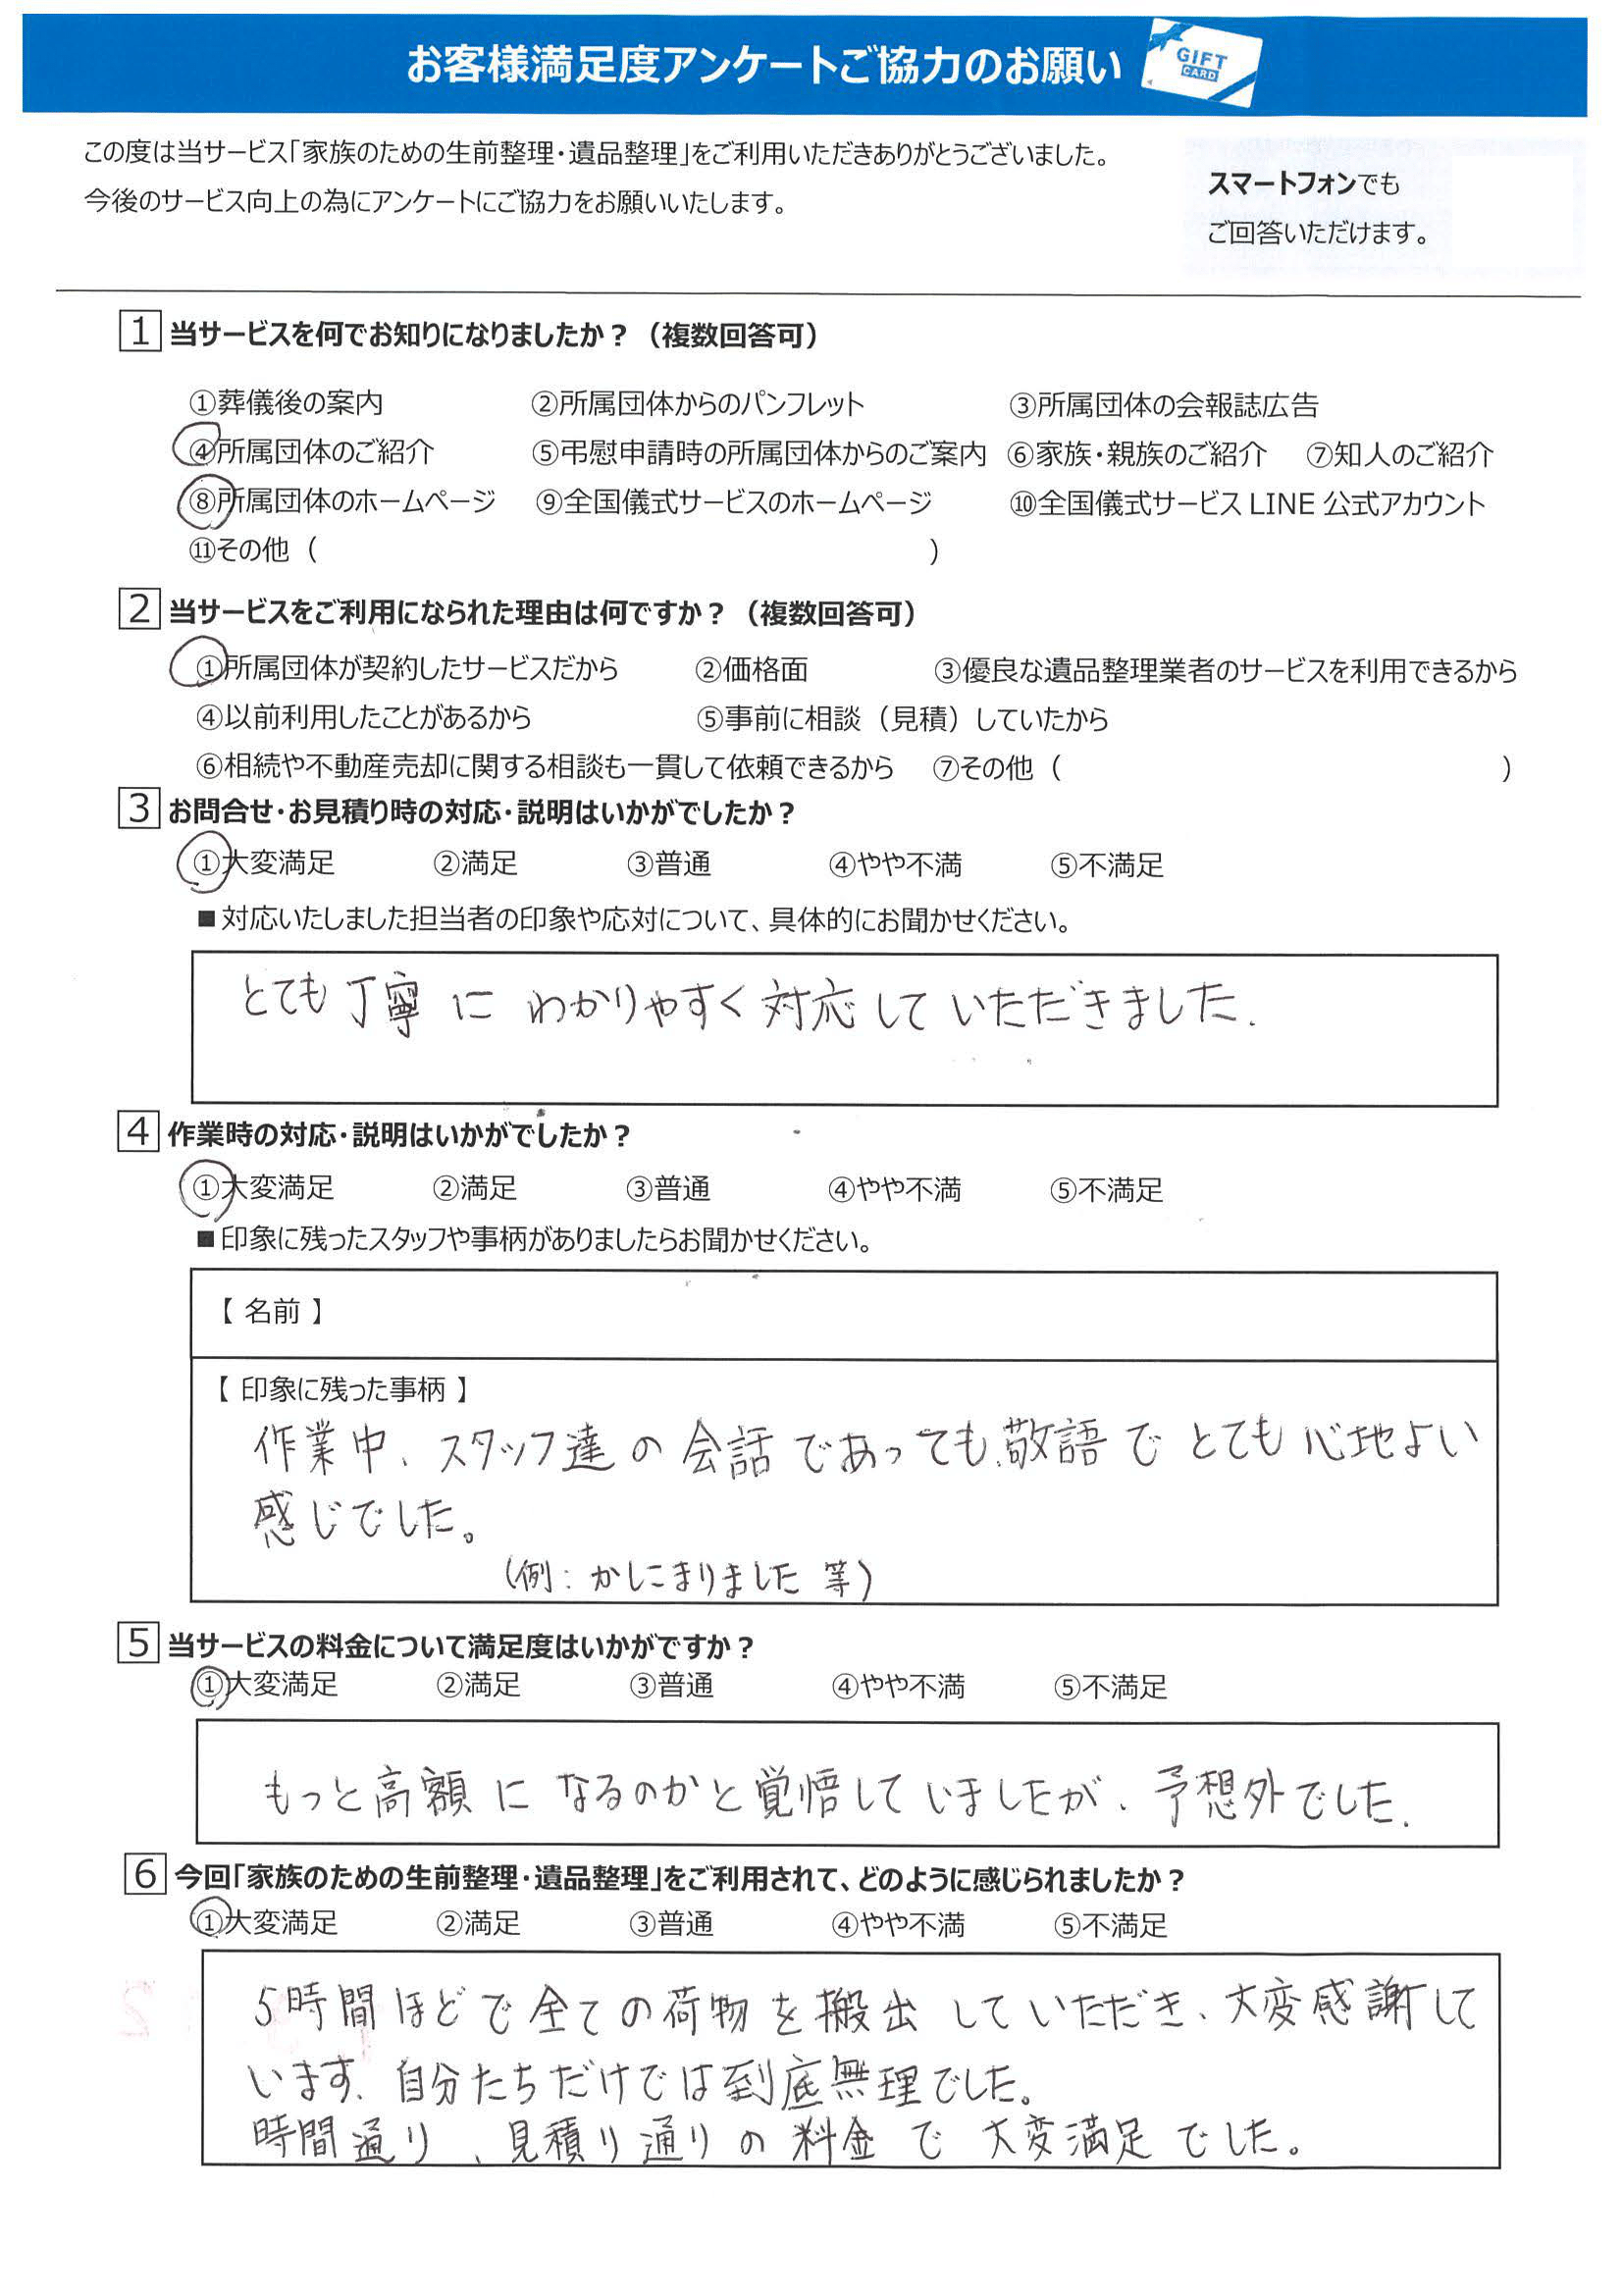 お客様満足度アンケートご協力のお願い
GIFT
CARD
この度は当サービス「家族のための生前整理・遺品整理」をご利用いただきありがとうございました。
今後のサービス向上の為にアンケートにご協力をお願いいたします。
スマートフォンでも
ご回答いただけます。
1 当サービスを何でお知りになりましたか？（複数回答可）
①葬儀後の案内 ②所属団体からのパンフレット ③所属団体の会報誌広告
④所属団体のご紹介 ⑤弔慰申請時の所属団体からのご案内 ⑥家族・親族のご紹介 ⑦知人のご紹介
⑧所属団体のホームページ ⑨全国儀式サービスのホームページ ⑩全国儀式サービス LINE 公式アカウント
⑪その他（ ）
2 当サービスをご利用になられた理由は何ですか？（複数回答可）
①所属団体が契約したサービスだから ②価格面 ③優良な遺品整理業者のサービスを利用できるから
④以前利用したことがあるから ⑤事前に相談（見積）していたから
⑥相続や不動産売却に関する相談も一貫して依頼できるから ⑦その他（ ）
3 お問合せ・お見積り時の対応・説明はいかがでしたか？
①大変満足 ②満足 ③普通 ④やや不満 ⑤不満足
■対応いたしました担当者の印象や応対について、具体的にお聞かせください。
とても丁寧にわかりやすく対応していただきました.
4 作業時の対応・説明はいかがでしたか？
①大変満足 ②満足 ③普通 ④やや不満 ⑤不満足
■印象に残ったスタッフや事柄がありましたらお聞かせください。
【 名前 】
【 印象に残った事柄 】
作業中、スタッフ達の会話であっても、敬語でとても心地よい
感じでした。
（例：かしこまりました 等）
5 当サービスの料金について満足度はいかがですか？
①大変満足 ②満足 ③普通 ④やや不満 ⑤不満足
もっと高額になるのかと覚悟していましたが、予想外でした.
6 今回「家族のための生前整理・遺品整理」をご利用されて、どのように感じられましたか？
①大変満足 ②満足 ③普通 ④やや不満 ⑤不満足
5時間ほどで全ての荷物を搬出していただき、大変感謝して
います。自分たちだけでは到底無理でした。
時間通り、見積り通りの料金で大変満足でした。